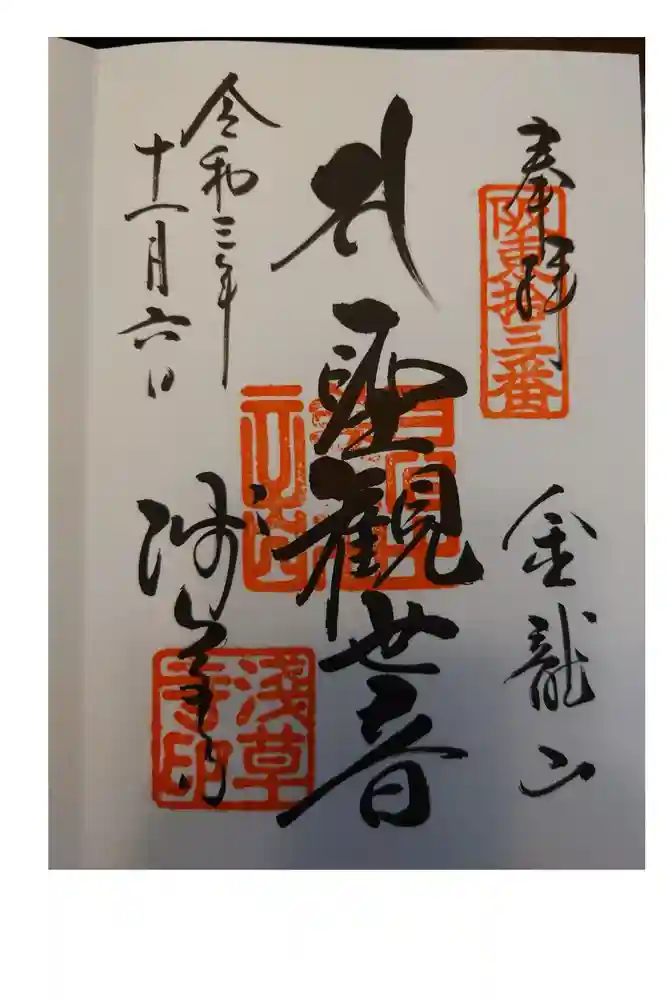 奉拝
阪東拾三番
金龍山
聖観世音
令和三年
十一月六日
浅草寺
浅草
寺印